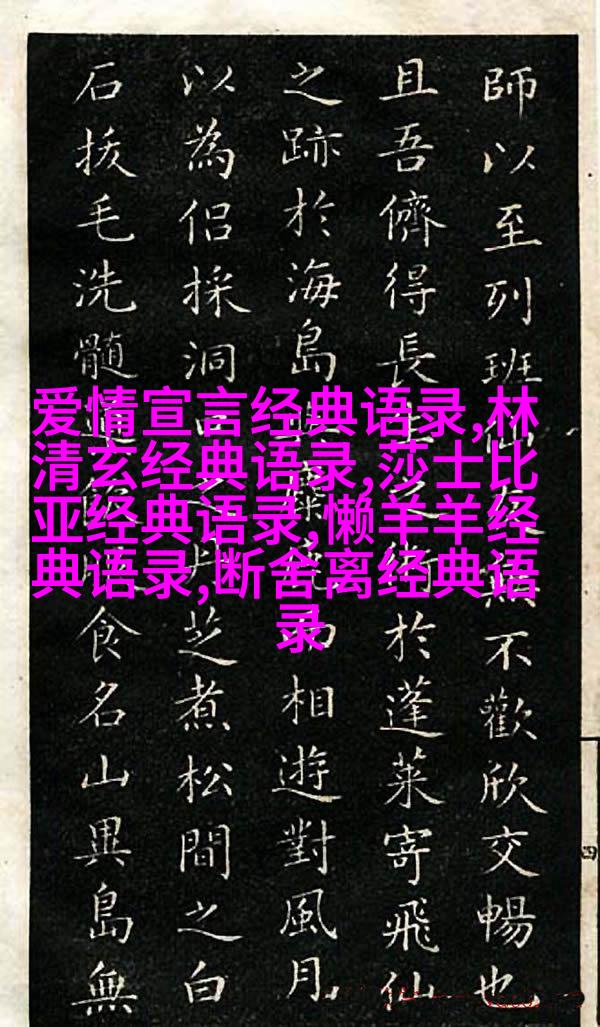 爱情宣言经典语录,林
清玄经典语录,莎士比
亚经典语录,懒羊羊经
典语录,断舍离经典语
录
師以至列班仙無不歡欣交暢也
且吾儕得長生之術於蓬萊寄飛仙
之跡於海島而相遊對風月
以為侶採洞之芝煮松間之白
石拔毛洗髓食名山異島無